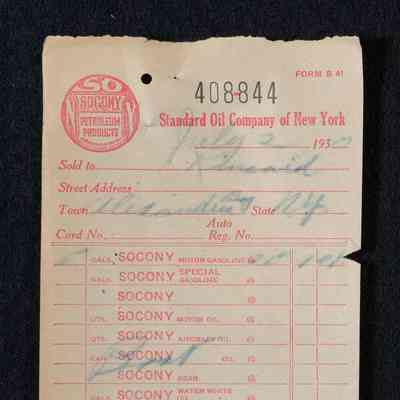 FORM B 41
SO
SOCONY
PETROLEUM
PRODUCTS
408844
Standard Oil Company of New York
July 2 1930
Sold to Kincaid
Street Address
Town Alexandria Bay State N.Y.
Auto
Card No. : Reg. No.
GALS. SOCONY MOTOR GASOLINE @
GALS. SOCONY SPECIAL GASOLINE @
SOCONY @
QTS. SOCONY MOTOR OIL @
QTS. SOCONY AIRCRAFT OIL @
SOCONY OIL @
SOCONY GEAR @
SOCONY WATER WHITE